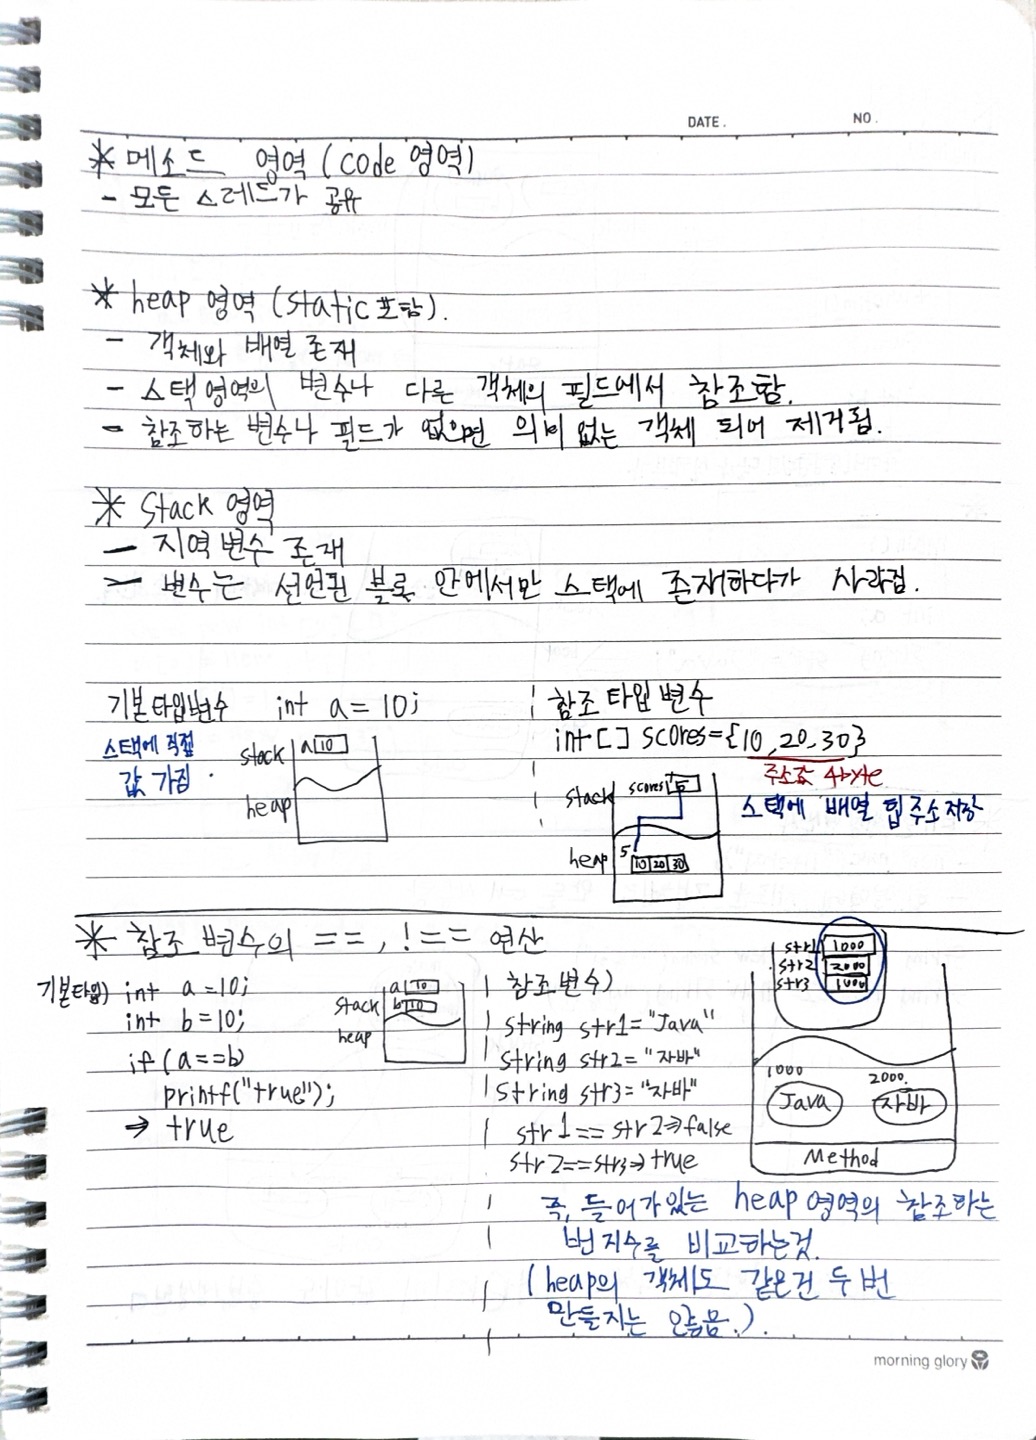 DATE. NO.
* 메소드 영역 (code 영역)
- 모든 스레드가 공유
* heap 영역 (static 포함).
- 객체와 배열 존재
- 스택 영역의 변수나 다른 객체의 필드에서 참조함.
- 참조하는 변수나 필드가 없으면 의미 없는 객체 되어 제거됨.
* Stack 영역
- 지역 변수 존재
- 변수는 선언된 블록 안에서만 스택에 존재하다가 사라짐.
기본타입변수 int a = 10;
스택에 직접
값 가짐.
stack a 10
heap
참조 타입 변수
int[] scores={10,20,30}
주소값 4byte
스택에 배열 힙 주소 저장
stack scores 5
heap 5
10 20 30
* 참조 변수의 ==, !== 연산
기본타입) int a =10;
int b =10;
if (a==b)
printf("true");
→ true
stack a 10
b 10
heap
참조변수)
string str1="Java"
string str2= "자바"
String str3="자바"
str1 == str2⇒false
str2==str3⇒true
str1 1000
str2 2000
str3 1000
1000 2000.
Java 자바
Method
즉, 들어가있는 heap 영역의 참조하는
번지수를 비교하는것.
(heap의 객체도 같은건 두번
만들지는 않음.).
morning glory